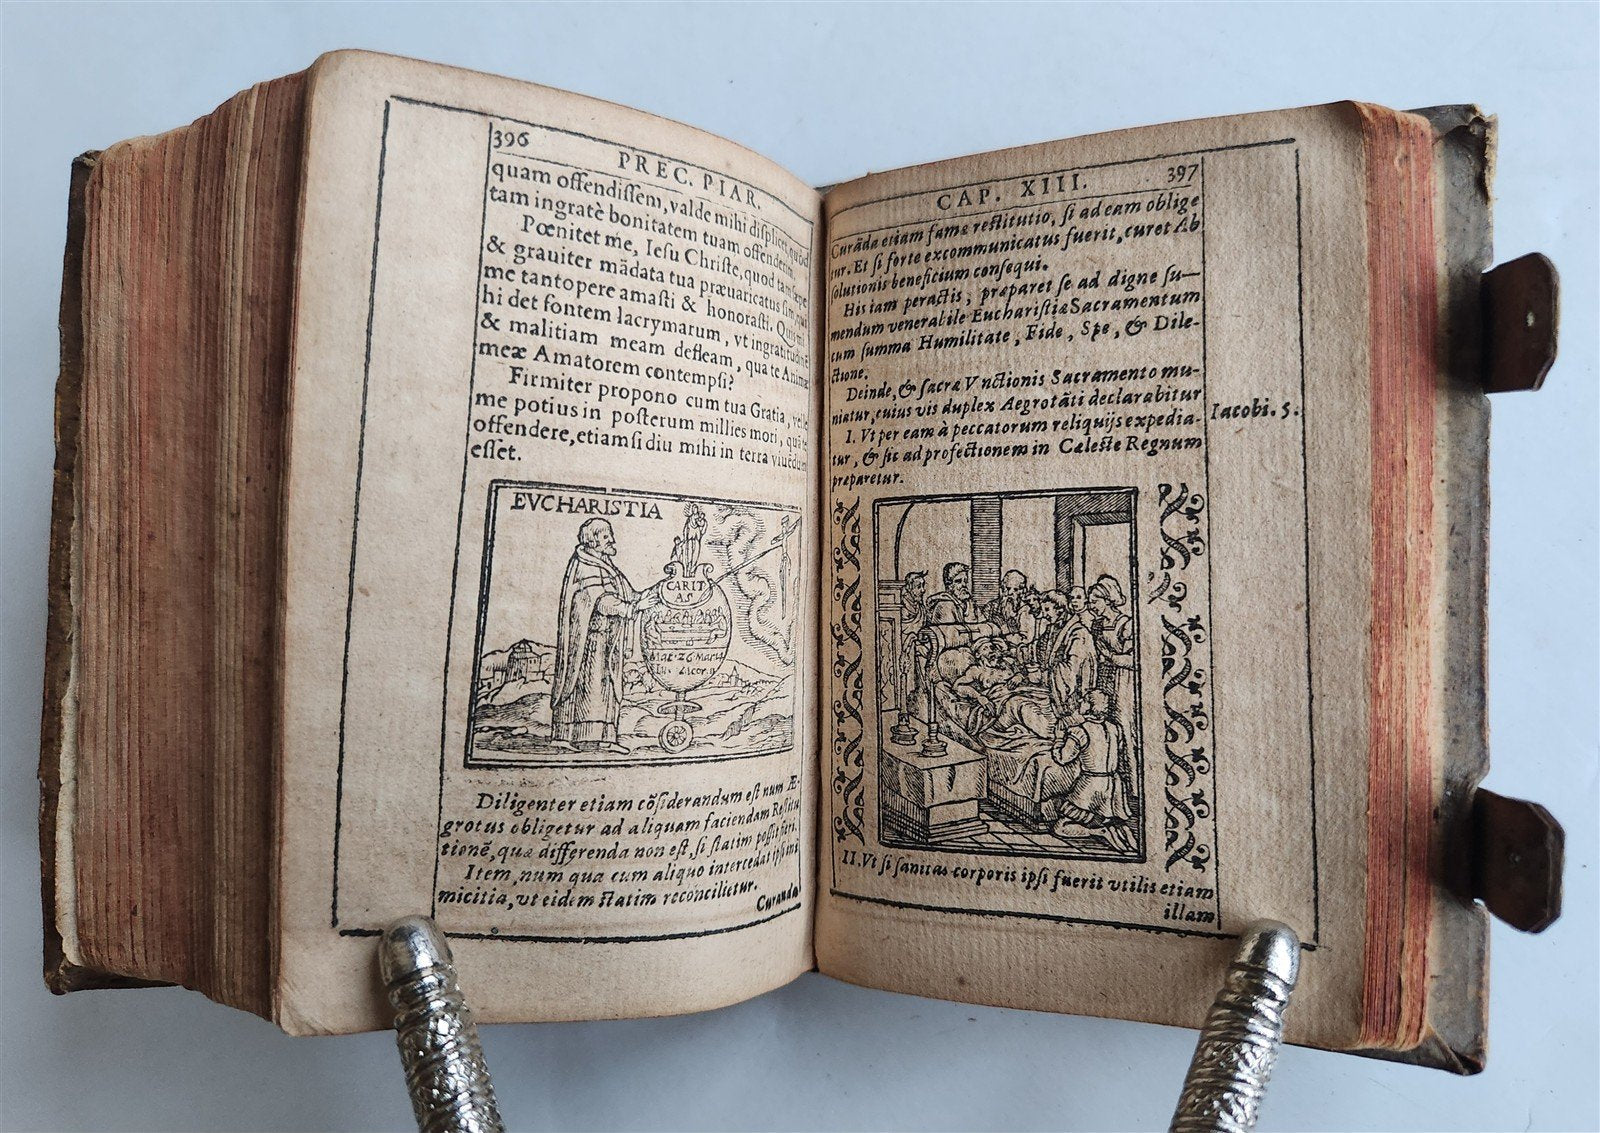 396
PREC. PIAR.
quam offendiſſem, valde mihi diſplicet quòd
tam ingratè bonitatem tuam offenderim.
Pœnitet me, Ieſu Chriſte, quod tam ſæpe
& grauiter mādata tua præuaricatus ſim, qui
me tantopere amaſti & honoraſti. Quis mi-
hi det fontem lacrymarum, vt ingratitudinē
& malitiam meam defleam, qua te Animæ
meæ Amatorem contempſi?
Firmiter propono cum tua Gratia, velle
me potius in poſterum millies mori, quā te
offendere, etiamſi diu mihi in terra viuēdum
eſſet.
EVCHARISTIA
CARIT
AS
Mat. 26 Marci
Diligenter etiam cōſiderandum eſt num Æ-
grotus obligetur ad aliquam faciendam Reſtitu
tionē, quæ differenda non eſt, ſi ſtatim poſſit fieri.
Item, num qua cum aliquo intercedat ipſi ini
micitia, vt eidem ſtatim reconcilietur.
Curanda
CAP. XIII.
397
Curāda etiam famæ reſtitutio, ſi ad eam oblige
tur. Et ſi forte excommunicatus fuerit, curet Ab
ſolutionis beneficium conſequi.
His iam peractis, præparet ſe ad digne ſu—
mendum venerabile Euchariſtiæ Sacramentum
cum ſumma Humilitate, Fide, Spe, & Dile-
ctione.
Deinde, & ſacræ Vnctionis Sacramento mu-
niatur, cuius vis duplex Aegrotāti declarabitur
Iacobi. 5.
I. Vt per eam à peccatorum reliquijs expedia-
tur, & ſic ad profectionem in Cæleſte Regnum
præparetur.
II. Vt ſi ſanitas corporis ipſi fuerit vtilis etiam
illam